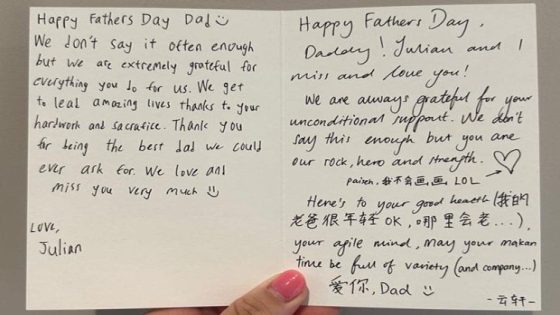 Happy Fathers Day Dad☺
We don't say it often enough
but we are extremely grateful for
everything you do for us. We get
to lead amazing lives thanks to your
hardwork and sacrafice. Thank you
for being the best dad we could
ever ask for. We love and
miss you very much ☺
LOVE,
Julian
Happy Fathers Day,
Daddy! Julian and I
miss and love you!
We are always grateful for your
unconditional support. We don't
say this enough but you are
our rock, hero and strength.
paiseh, 我不会画画 LOL
Here's to your good health (我的
老爸很年轻 OK, 哪里会老...),
your agile mind, may your makan
time be full of variety (and company...)
爱你, Dad ☺
-云轩-